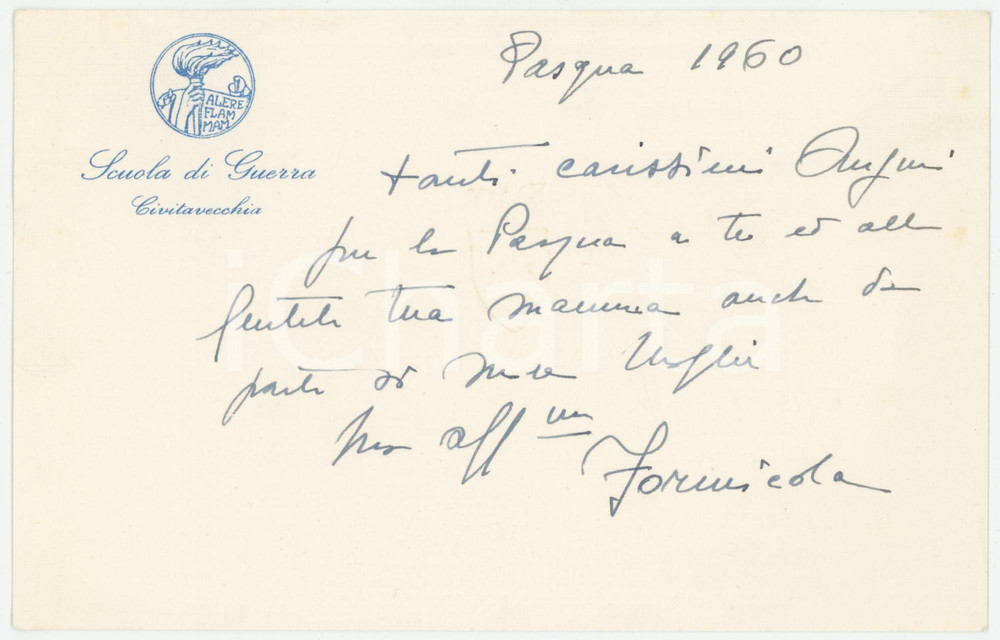 ALERE
FLAM
MAM
Scuola di Guerra
Civitavecchia
Pasqua 1960
tanti carissimi Auguri
per la Pasqua a te ed alla
gentile tua mamma anche da
parte di mia moglie
tuo aff.mo
Formicola
iCharta